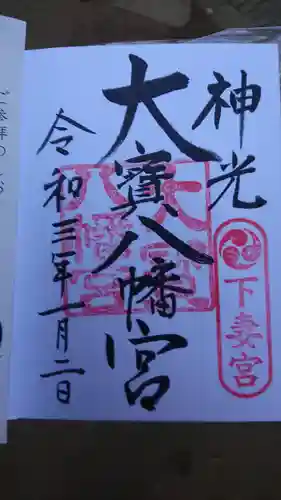 神光
下妻宮
大寳八幡宮
大寳八幡宮
令和三年一月二日
ご参拝の